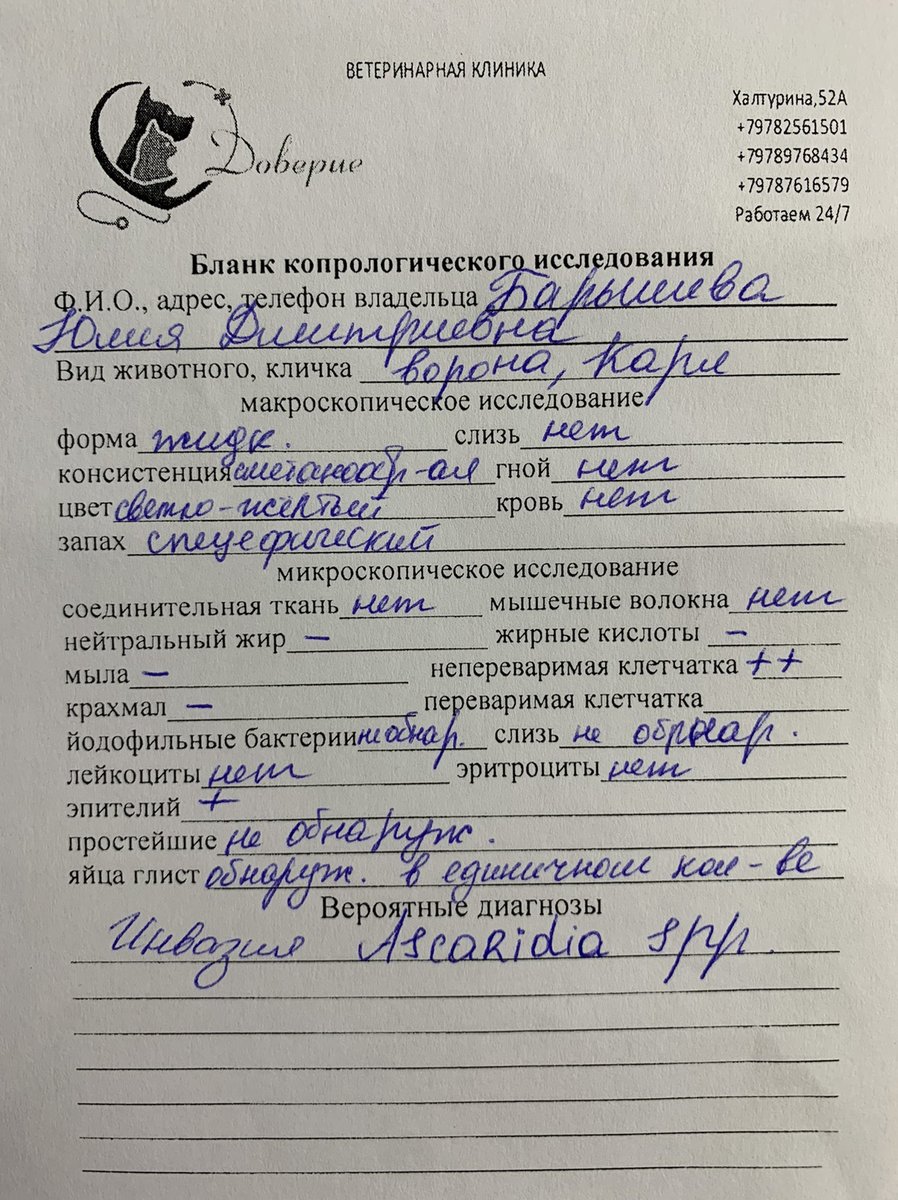 ВЕТЕРИНАРНАЯ КЛИНИКА
Доверие
Халтурина,52А
+79782561501
+79789768434
+79787616579
Работаем 24/7
Бланк копрологического исследования
Ф.И.О., адрес, телефон владельца Барышева
Юлия Димитриевна
Вид животного, кличка ворона, Карл
макроскопическое исследование
форма жидк. слизь нет
консистенция сметанообр-ая гной нет
цвет светло-жёлтый кровь нет
запах спецефический
микроскопическое исследование
соединительная ткань нет мышечные волокна нет
нейтральный жир – жирные кислоты –
мыла – непереваримая клетчатка ++
крахмал – переваримая клетчатка
йодофильные бактерии не обнар. слизь не обнар.
лейкоциты нет эритроциты нет
эпителий +
простейшие не обнаруж.
яйца глист обнаруж. в единичном кол-ве
Вероятные диагнозы
Инвазия Ascaridia spp.